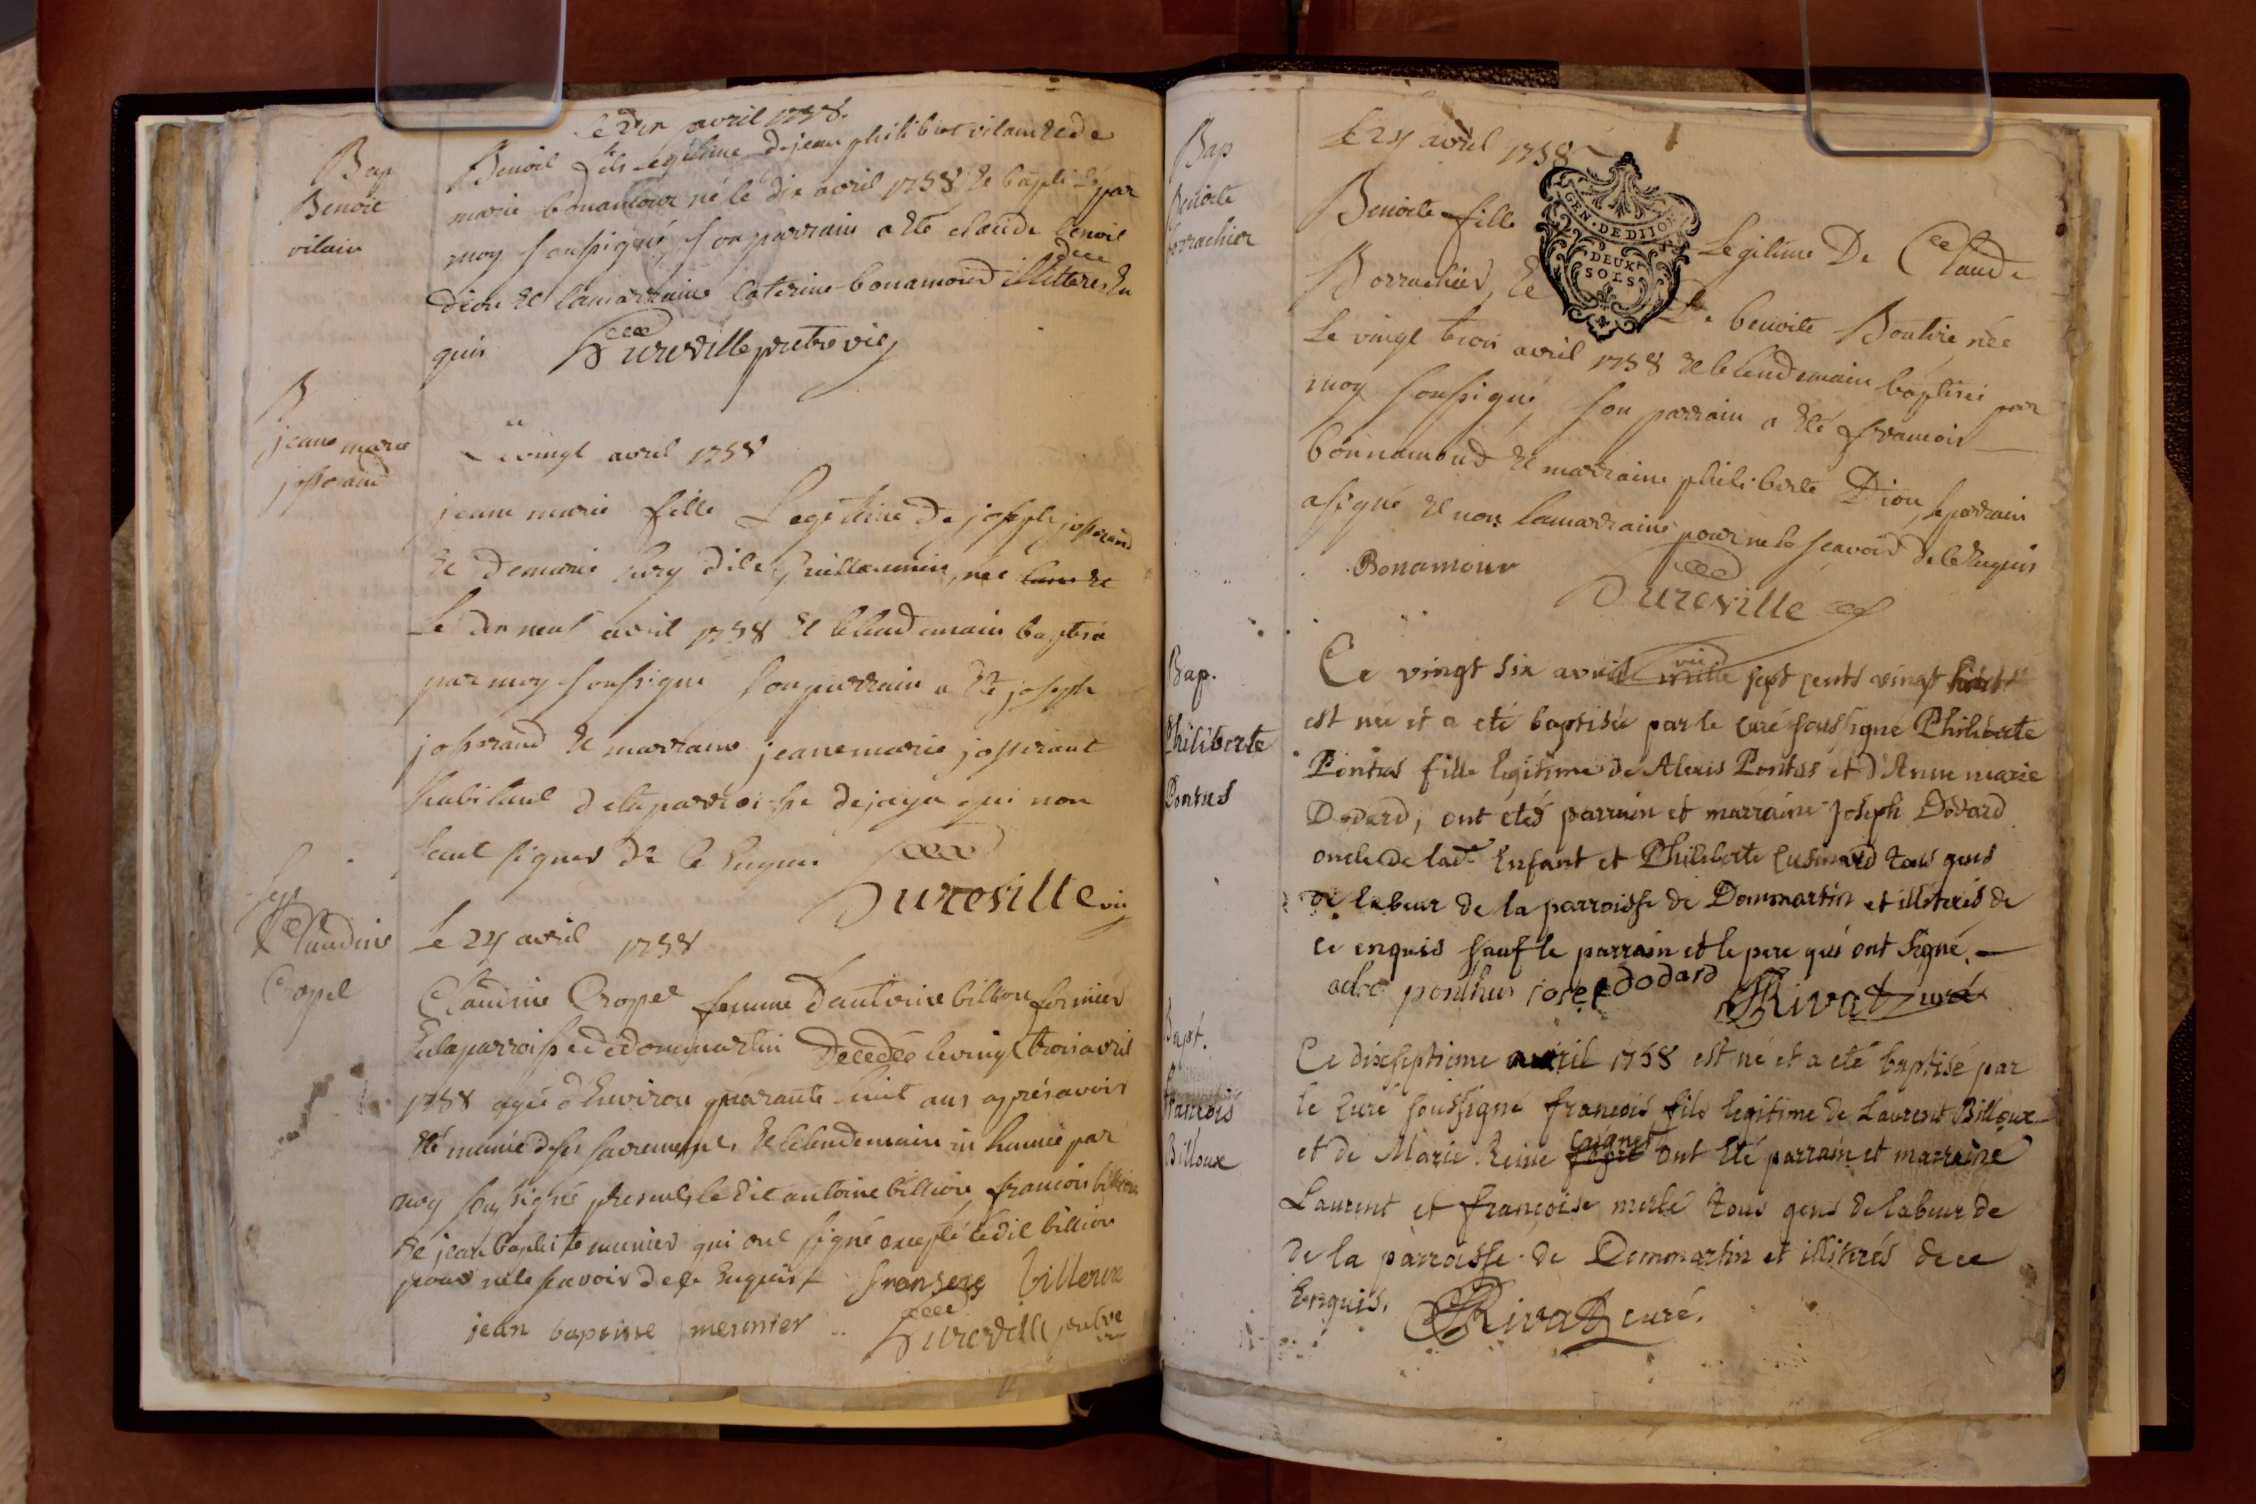 Le dix avril 1758.
Bap
Benoit
vilain
Benoit fils Légitime de jean philibert vilain et de
marie bonamour né le dix avril 1758 et baptisé par
moy soussigné, son parrain a été claude benoit
dion et la marraine caterine bonamour illitteres En
quis Dureville pretre vic
B
jeane marie
josserand
Le vingt avril 1758
jeane marie fille Legitime de joseph josserand
et de marie dite Guillaumin, née
Le dix neuf avril 1758 et le lendemain baptisée
par moy soussigné son parrain a été joseph
josserand et marraine jeane marie josserand
habitant de la parroisse de qui non
seut signer de ce Enquis
Dureville vic
Sep
Claudine
Cropet
Le 24 avril 1758
Claudine Cropet femme d'antoine billion fermier
En la parroisse de dommartin Decedée le vingt trois avril
1758 agée d'Environ quarante huit ans aprés avoir
été munie de ses sacrements et le lendemain in humée par
moy soussigné presents le dit antoine billion, francois billion
et jean baptiste munier qui ont signé excepté le dit billion
pour ne le scavoir de ce Enquis fransois billoux
jean baptiste meunier Dureville pretre
vic
Bap
Benoite
borrachier
Le 24 avril 1758
GEN. DE DIJON
DEUX
SOLS
Benoite fille Legitime De Claude
Borrachier, Et De benoite Boutire, née
Le vingt trois avril 1758 et le lendemain baptisée par
moy soussigné, son parrain a été francois
bonnamoud et marraine philiberte Dion, le parrain
a signé et non la marraine pour ne le scavoir de ce Enquis
Bonamour
Dureville
vic
Bap.
Philiberte
Pontus
Ce vingt six avril mille sept cents vingt huit
est née et a eté baptisée par le curé soussigné Philiberte
Pontus fille legitime de Alexis Pontus et d'Anne marie
Dodard, ont etés parrain et marraine Joseph Dodard
oncle de lad.te Enfant et Philiberte Cusinard tous gens
de labeur de la parroisse de Dommartin et illiterés de
ce enquis sauf le parrain et le pere qui ont signé.
ponthus josep dodard Rivat curé
Bapt.
francois
Billoux
Ce dixseptieme avril 1758 est né et a eté baptisé par
le Curé soussigné françois fils legitime de Laurent Billoux
et de Marie Reine ont Eté parrain et marraine
Laurent et françoise merle tous gens de labeur de
de la parroisse de Dommartin et illiterés de ce
Enquis. Rivat curé.